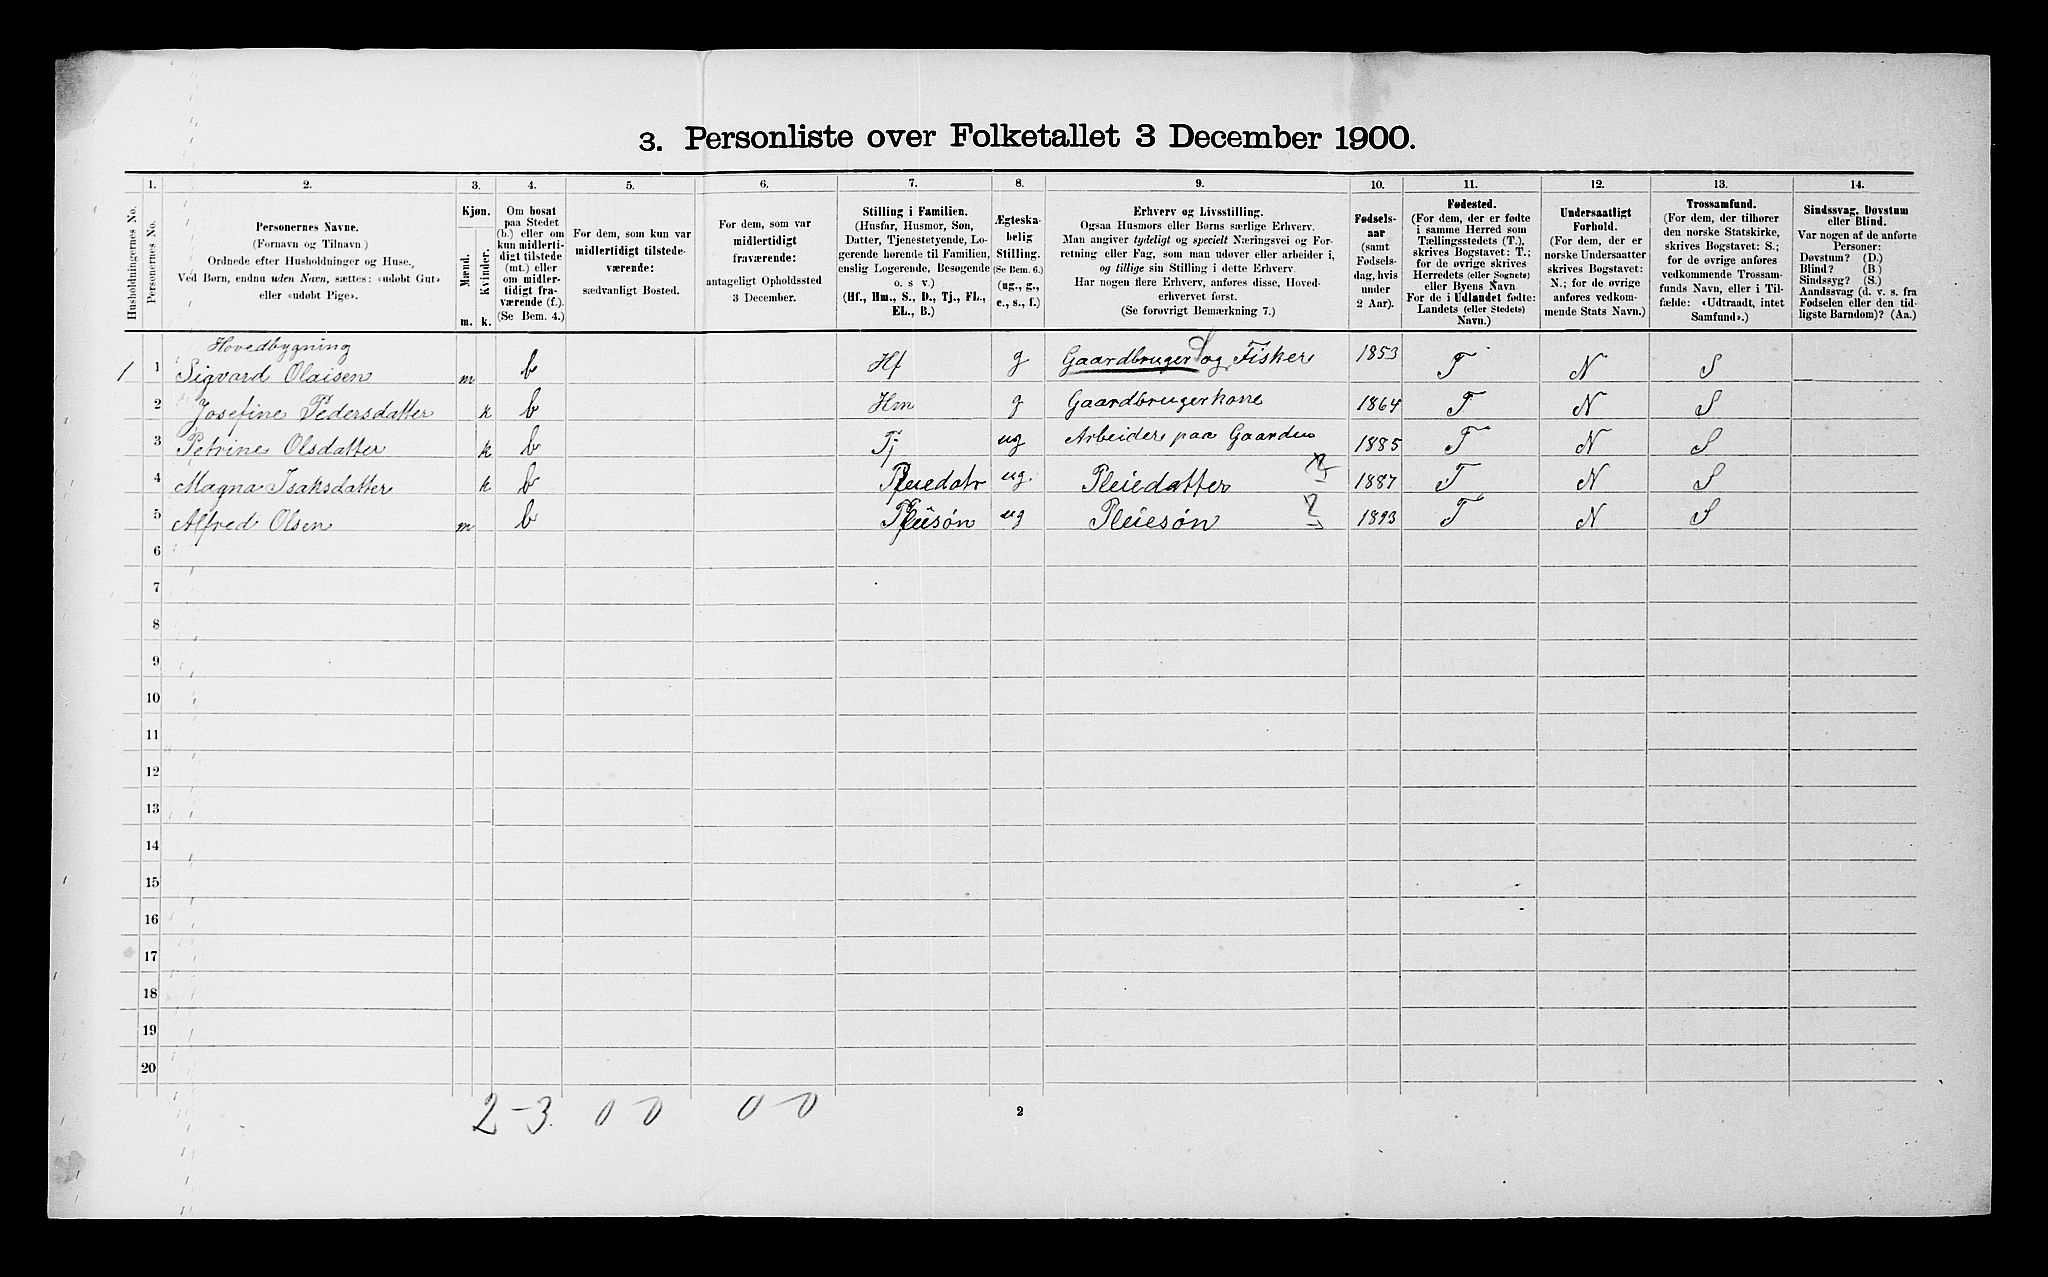 3. Personliste over Folketallet 3 December 1900.
1. 2. 3. 4. 5. 6. 7. 8. 9. 10. 11. 12. 13. 14.
Husholdningernes No.
Personernes No.
Personernes Navne.
(Fornavn og Tilnavn)
Ordnede efter Husholdninger og Huse.
Ved Børn, endnu uden Navn, sættes: «udøbt Gut»
eller «udøbt Pige».
Kjøn.
Mænd. Kvinder.
m. k.
Om bosat
paa Stedet
(b.) eller om
kun midlerti-
digt tilstede
(mt.) eller
om midler-
tidigt fra-
værende (f.).
(Se Bem. 4.)
For dem, som kun var
midlertidigt tilstede-
værende:
sædvanligt Bosted.
For dem, som var
midlertidigt
fraværende:
antageligt Opholdssted
3 December.
Stilling i Familien.
(Husfar, Husmor, Søn,
Datter, Tjenestetyende, Lo-
gerende hørende til Familien,
enslig Logerende, Besøgende
o. s v.)
(Hf., Hm., S., D., Tj., FL.,
EL., B.)
Ægteska-
belig
Stilling.
(Se Bem. 6.)
(ug., g.,
e., s., f.)
Erhverv og Livsstilling.
Ogsaa Husmors eller Børns særlige Erhverv.
Man angiver tydeligt og specielt Næringsvei og For-
retning eller Fag, som man udøver eller arbeider i,
og tillige sin Stilling i dette Erhverv.
Har nogen flere Erhverv, anføres disse, Hoved-
erhvervet først.
(Se forøvrigt Bemærkning 7.)
Fødsels-
aar
(samt
Fødsels-
dag, hvis
under
2 Aar).
Fødested.
(For dem, der er fødte
i samme Herred som
Tællingsstedets (T.),
skrives Bogstavet: T.;
for de øvrige skrives
Herredets (eller Sognets)
eller Byens Navn
For de i Udlandet fødte:
Landets (eller Stedets)
Navn.)
Undersaatligt
Forhold.
(For dem, der er
norske Undersaatter
skrives Bogstavet:
N.; for de øvrige
anføres vedkom-
mende Stats Navn.)
Trossamfund.
(For dem, der tilhører
den norske Statskirke,
skrives Bogstavet: S.;
for de øvrige anføres
vedkommende Trossam-
funds Navn, eller i Til-
fælde: «Udtraadt, intet
Samfund».)
Sindssvag, Døvstum
eller Blind.
Var nogen af de anførte
Personer:
Døvstum? (D.)
Blind? (B.)
Sindssyg? (S.)
Aandssvag (d. v. s. fra
Fødselen eller den tid-
ligste Barndom)? (Aa.)
Hovedbygning
1 1 Sigvard Olaisen m b Hf g Gaardbruger og Fisker 1853 T N S
2 Josefine Pedersdatter k b Hm g Gaardbrugerkone 1864 T N S
3 Petrine Olsdatter k b Tj ug Arbeider paa Gaarden 1885 T N S
4 Magna Isaksdatter k b Pleiedatr ug. Pleiedatter 1887 T N S
5 Alfred Olsen m b Pleisøn ug Pleiesøn 1893 T N S
6
7
8
9
10
11
12
13
14
15
16
17
18
19
20
2-3 0 0 0-0
2